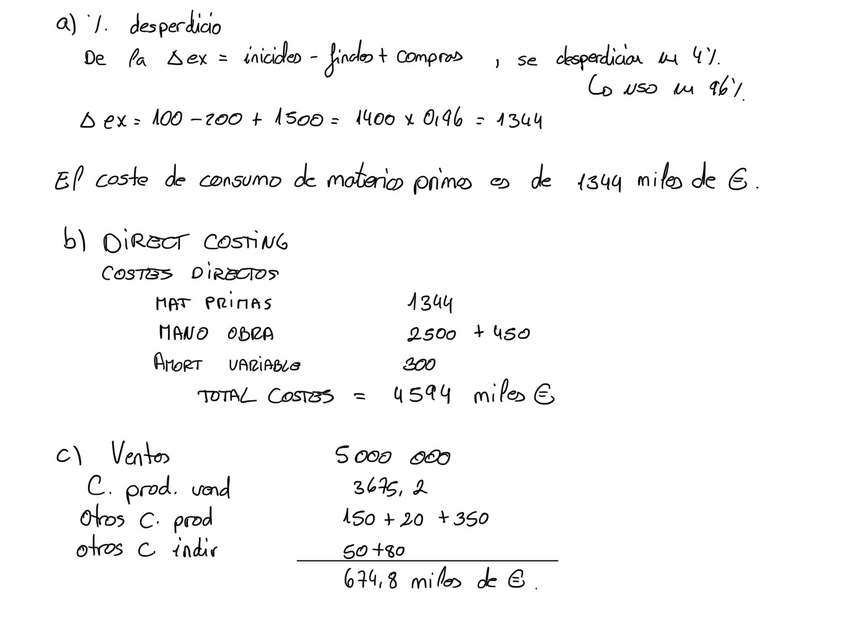 a) % desperdicio
De la Δex = iniciales - finales + compras, se desperdician un 4%.
Lo uso un 96%.
Δex = 100 - 200 + 1500 = 1400 x 0,96 = 1344
El coste de consumo de materias primas es de 1344 miles de €.
b) DIRECT COSTING
COSTES DIRECTOS
MAT PRIMAS 1344
MANO OBRA 2500 + 450
AMORT VARIABLE 300
TOTAL COSTES = 4594 miles €
c) Ventas 5000 000
C. prod. vend 3675,2
otros C. prod 150 + 20 + 350
otros C indir 50+80
674,8 miles de €.